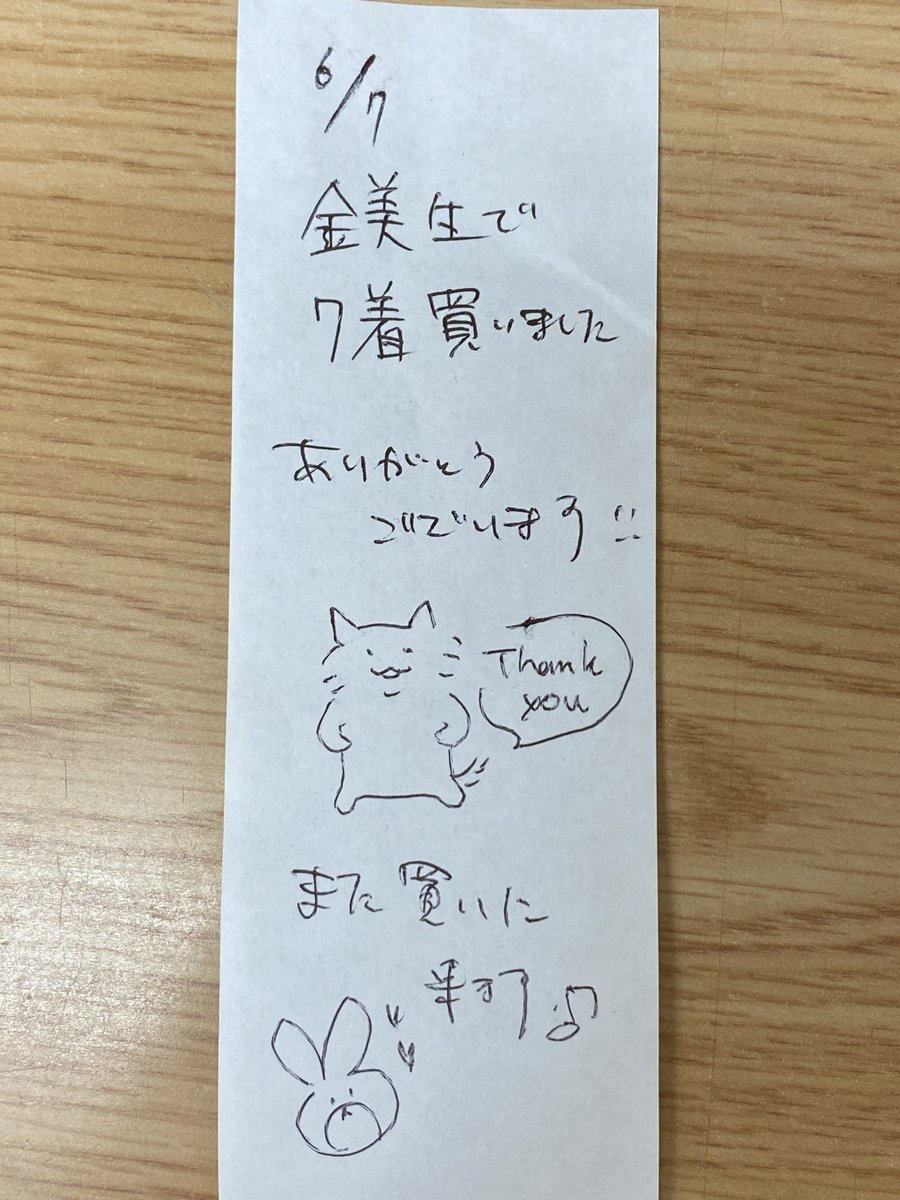 6/7
金美生で
7着買いました
ありがとう
ございます
Thank
you
また買いに
来ます♪